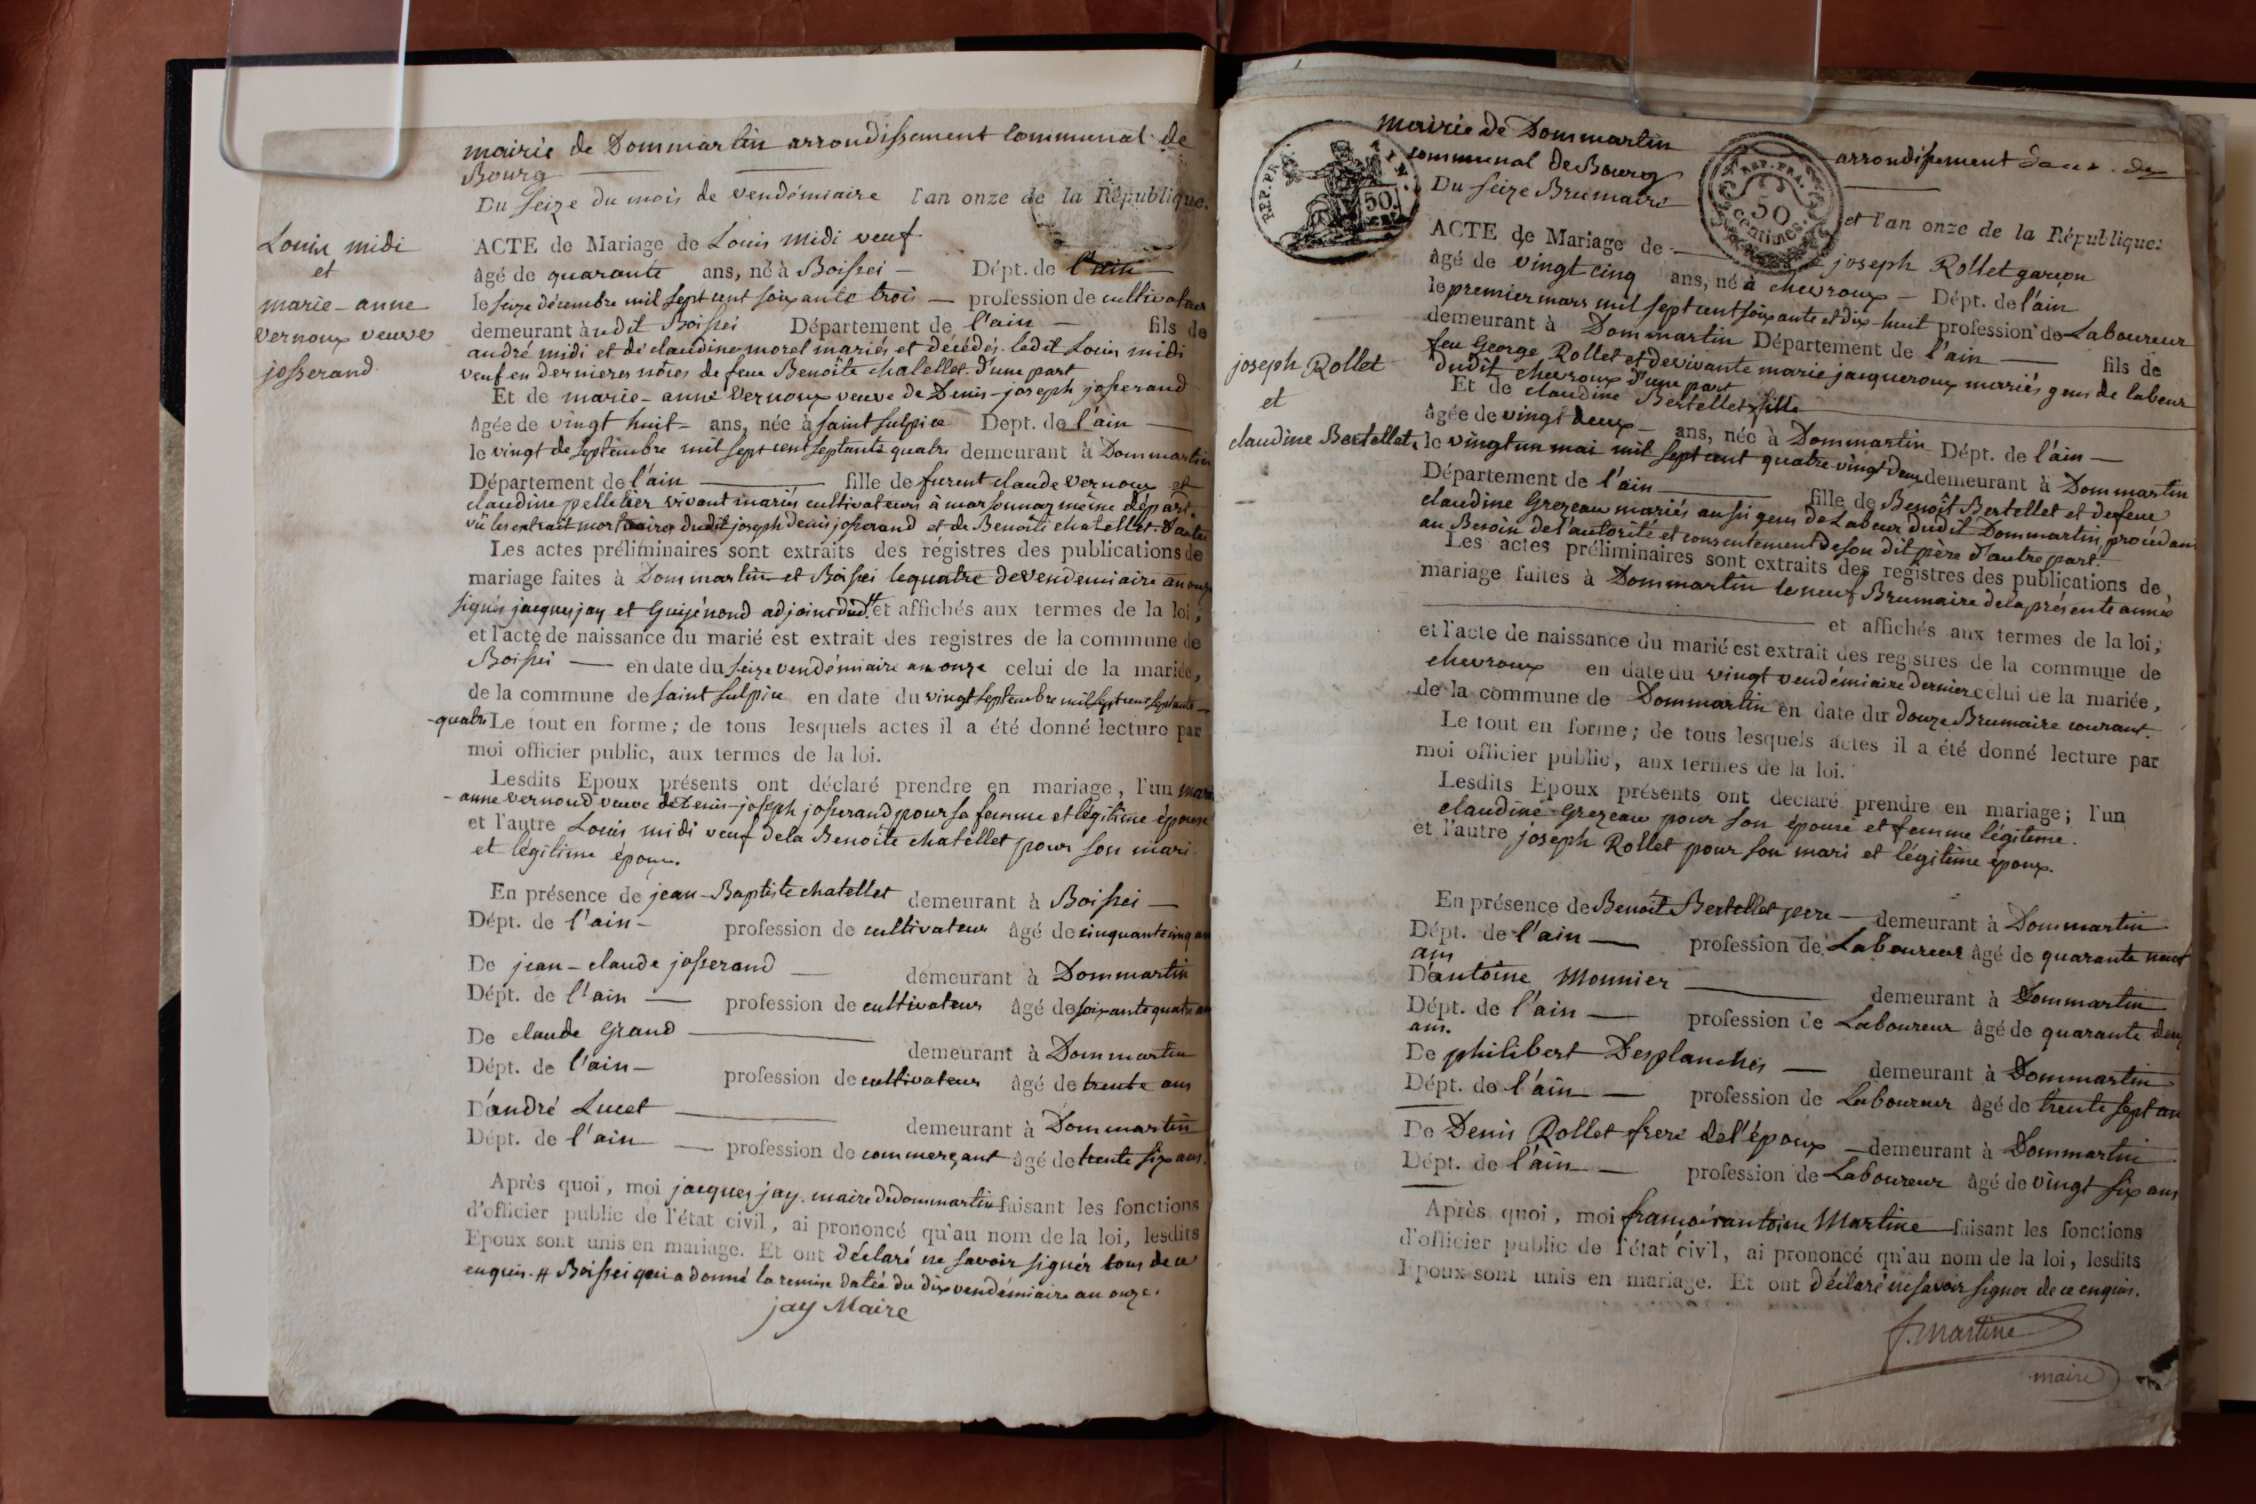 mairie de Dommartin arrondissement Communal de
Bourg
Du Seize du mois de vendémiaire l'an onze de la République.
Louis midi
et
marie-anne
vernoux veuve
josserand
ACTE de Mariage de Louis midi veuf
âgé de quarante ans, né à Boissei — Dépt. de l'ain
le seize décembre mil sept cent soixante trois — profession de cultivateur
demeurant àudit Boissei Département de l'ain — fils de
andré midi et de claudine morel mariés et décédés. ledit Louis midi
veuf en dernieres nôces de feue Benoîte chatellet. d'une part
Et de marie-anne vernoux veuve de Denis-joseph josserand
âgée de vingt huit - ans, née à saint sulpice Dept. de l'ain —
le vingt de septembre mil sept cent septante quatre demeurant à Dommartin
Département de l'ain — fille de furent claude vernoux et
claudine pelletier vivant mariés cultivateurs à marsonnaz même départ.
vû les extrait mortuaires dudit joseph denis josserand et de Benoîte chatellet. d'autre
Les actes préliminaires sont extraits des régistres des publications de
mariage faites à Dommartin et Boissei le quatre de vendemiaire an onze
signés jacques jay et Guyénond adjoint dud. # et affichés aux termes de la loi,
et l'acte de naissance du marié est extrait des registres de la commune de
Boissei — en date du seize vendémiaire an onze celui de la mariée,
de la commune de saint sulpice en date du vingt septembre mil sept cent septante
-quatre Le tout en forme ; de tous lesquels actes il a été donné lecture par
moi officier public, aux termes de la loi.
Lesdits Epoux présents ont déclaré prendre en mariage, l'un marie
- anne vernoud veuve de Denis-joseph josserand pour sa femme et légitime épouse
et l'autre Louis midi veuf de la Benoîte chatellet pour son mari
et légitime époux.
En présence de jean-Baptiste chatellet demeurant à Boissei —
Dépt. de l'ain - profession de cultivateur âgé de cinquante cinq ans
De jean-claude josserand — demeurant à Dommartin
Dépt. de l'ain — profession de cultivateur âgé de soixante quatre ans
De claude Grand — demeurant à Dommartin
Dépt. de l'ain — profession de cultivateur âgé de trente ans
D'andré Lucet — demeurant à Dommartin
Dépt. de l'ain — profession de commerçant âgé de trente six ans.
Après quoi, moi jacques jay. maire de dommartin faisant les fonctions
d'officier public de l'état civil, ai prononcé qu'au nom de la loi, lesdits
Epoux sont unis en mariage. Et ont déclaré ne savoir signer tous de ce
enquis. # Boissei qui a donné la remise datée du dix vendémiaire an onze.
jay Maire
mairie de Dommartin arrondissement
communal de Bourg
Du seize Brumaire et l'an onze de la République.
REP. FRA.
AIN.
50
CEN
REP. FRA.
50
centimes
joseph Rollet
et
claudine Bertellet
ACTE de Mariage de — joseph Rollet garçon
âgé de vingt cinq ans, né à chevroux — Dépt. de l'ain
le premier mars mil sept cent soixante et dix-huit profession de Laboureur
demeurant à Dommartin Département de l'ain — fils de
feu George Rollet et de vivante marie jacqueroux mariés gens de labeur
dudit chevroux d'une part
Et de claudine Bertellet fille
âgée de vingt deux - ans, née à Dommartin Dépt. de l'ain —
le vingt un mai mil sept cent quatre-vingt Deux demeurant à Dommartin
Département de l'ain — fille de Benoît Bertellet et de feue
claudine Grezeau mariés aussi gens de Labeur dudit Dommartin, procédant
au Besoin de l'autorité et consentement de son dit père d'autre part.
Les actes préliminaires sont extraits des registres des publications de
mariage faites à Dommartin le neuf Brumaire de la présente année
et affichés aux termes de la loi,
et l'acte de naissance du marié est extrait des registres de la commune de
chevroux en date du vingt vendémiaire dernier celui de la mariée,
de la commune de Dommartin en date du douze Brumaire courant.
Le tout en forme ; de tous lesquels actes il a été donné lecture par
moi officier public, aux termes de la loi.
Lesdits Epoux présents ont déclaré prendre en mariage ; l'un
claudine Grezeau pour son épouse et femme légitime.
et l'autre joseph Rollet pour son mari et légitime époux.
En présence de Benoît Bertellet pere — demeurant à Dommartin
Dépt. de l'ain — profession de Laboureur âgé de quarante neuf
ans
D'antoine Monnier — demeurant à Dommartin
Dépt. de l'ain — profession de Laboureur âgé de quarante deux
ans.
De philibert Desplanches — demeurant à Dommartin
Dépt. de l'ain — profession de Laboureur âgé de trente sept ans
De Denis Rollet frere de l'époux — demeurant à Dommartin
Dépt. de l'ain — profession de Laboureur âgé de vingt six ans
Après quoi, moi françois antoine Martine faisant les fonctions
d'officier public de l'état civil, ai prononcé qu'au nom de la loi, lesdits
Epoux sont unis en mariage. Et ont déclaré ne savoir signer de ce enquis.
f. martine
maire